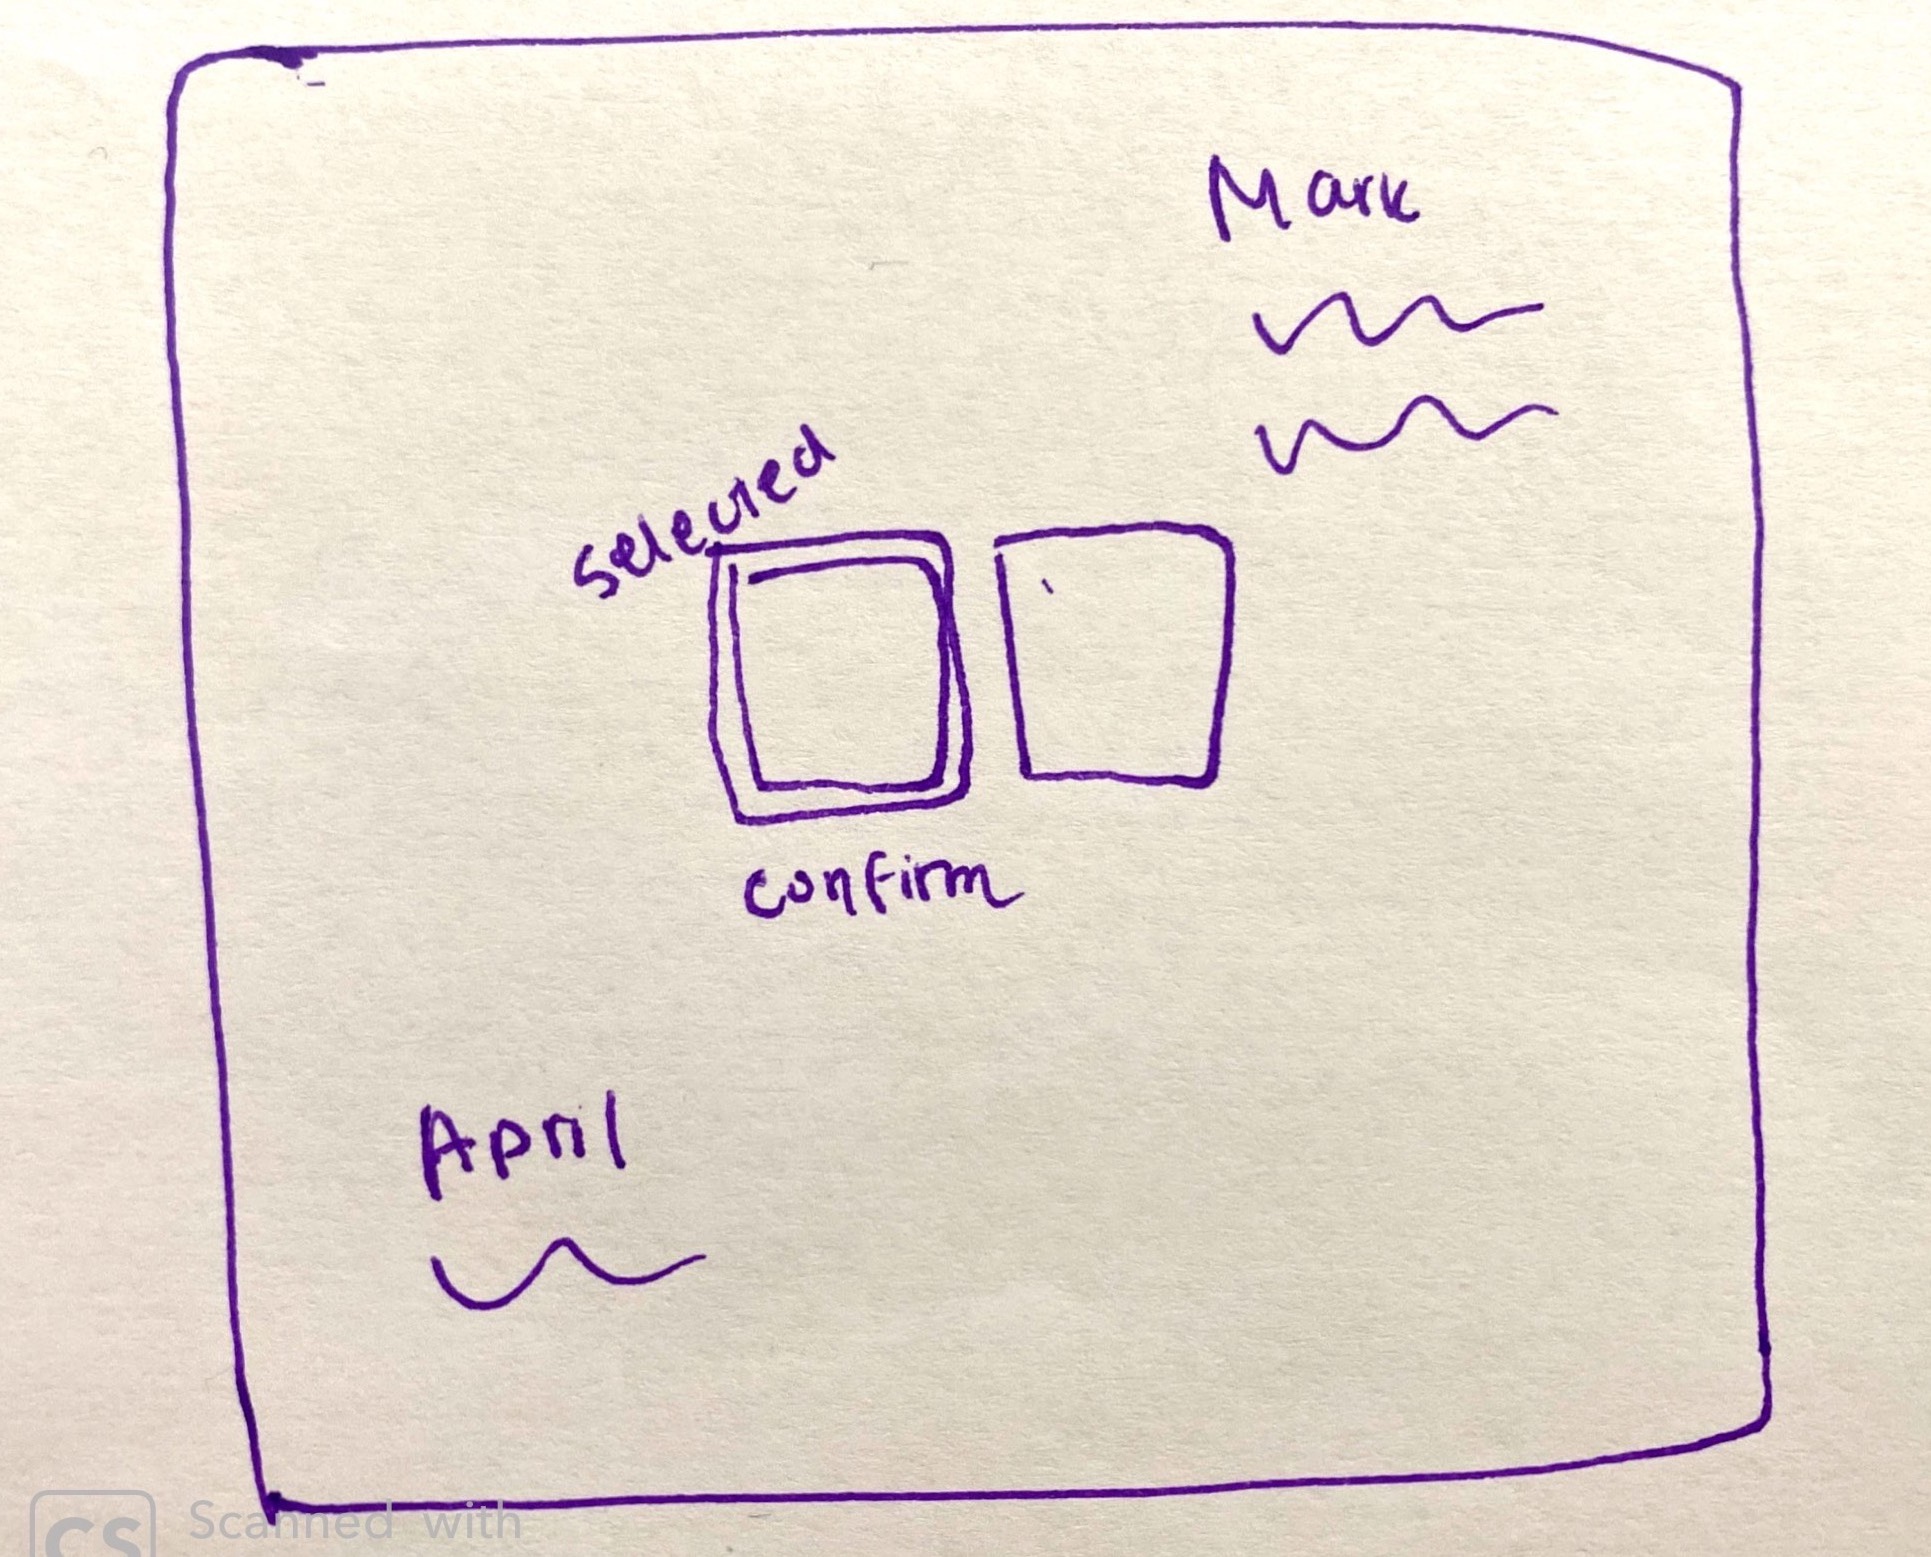 Mark
Selected
confirm
April
CS Scanned with